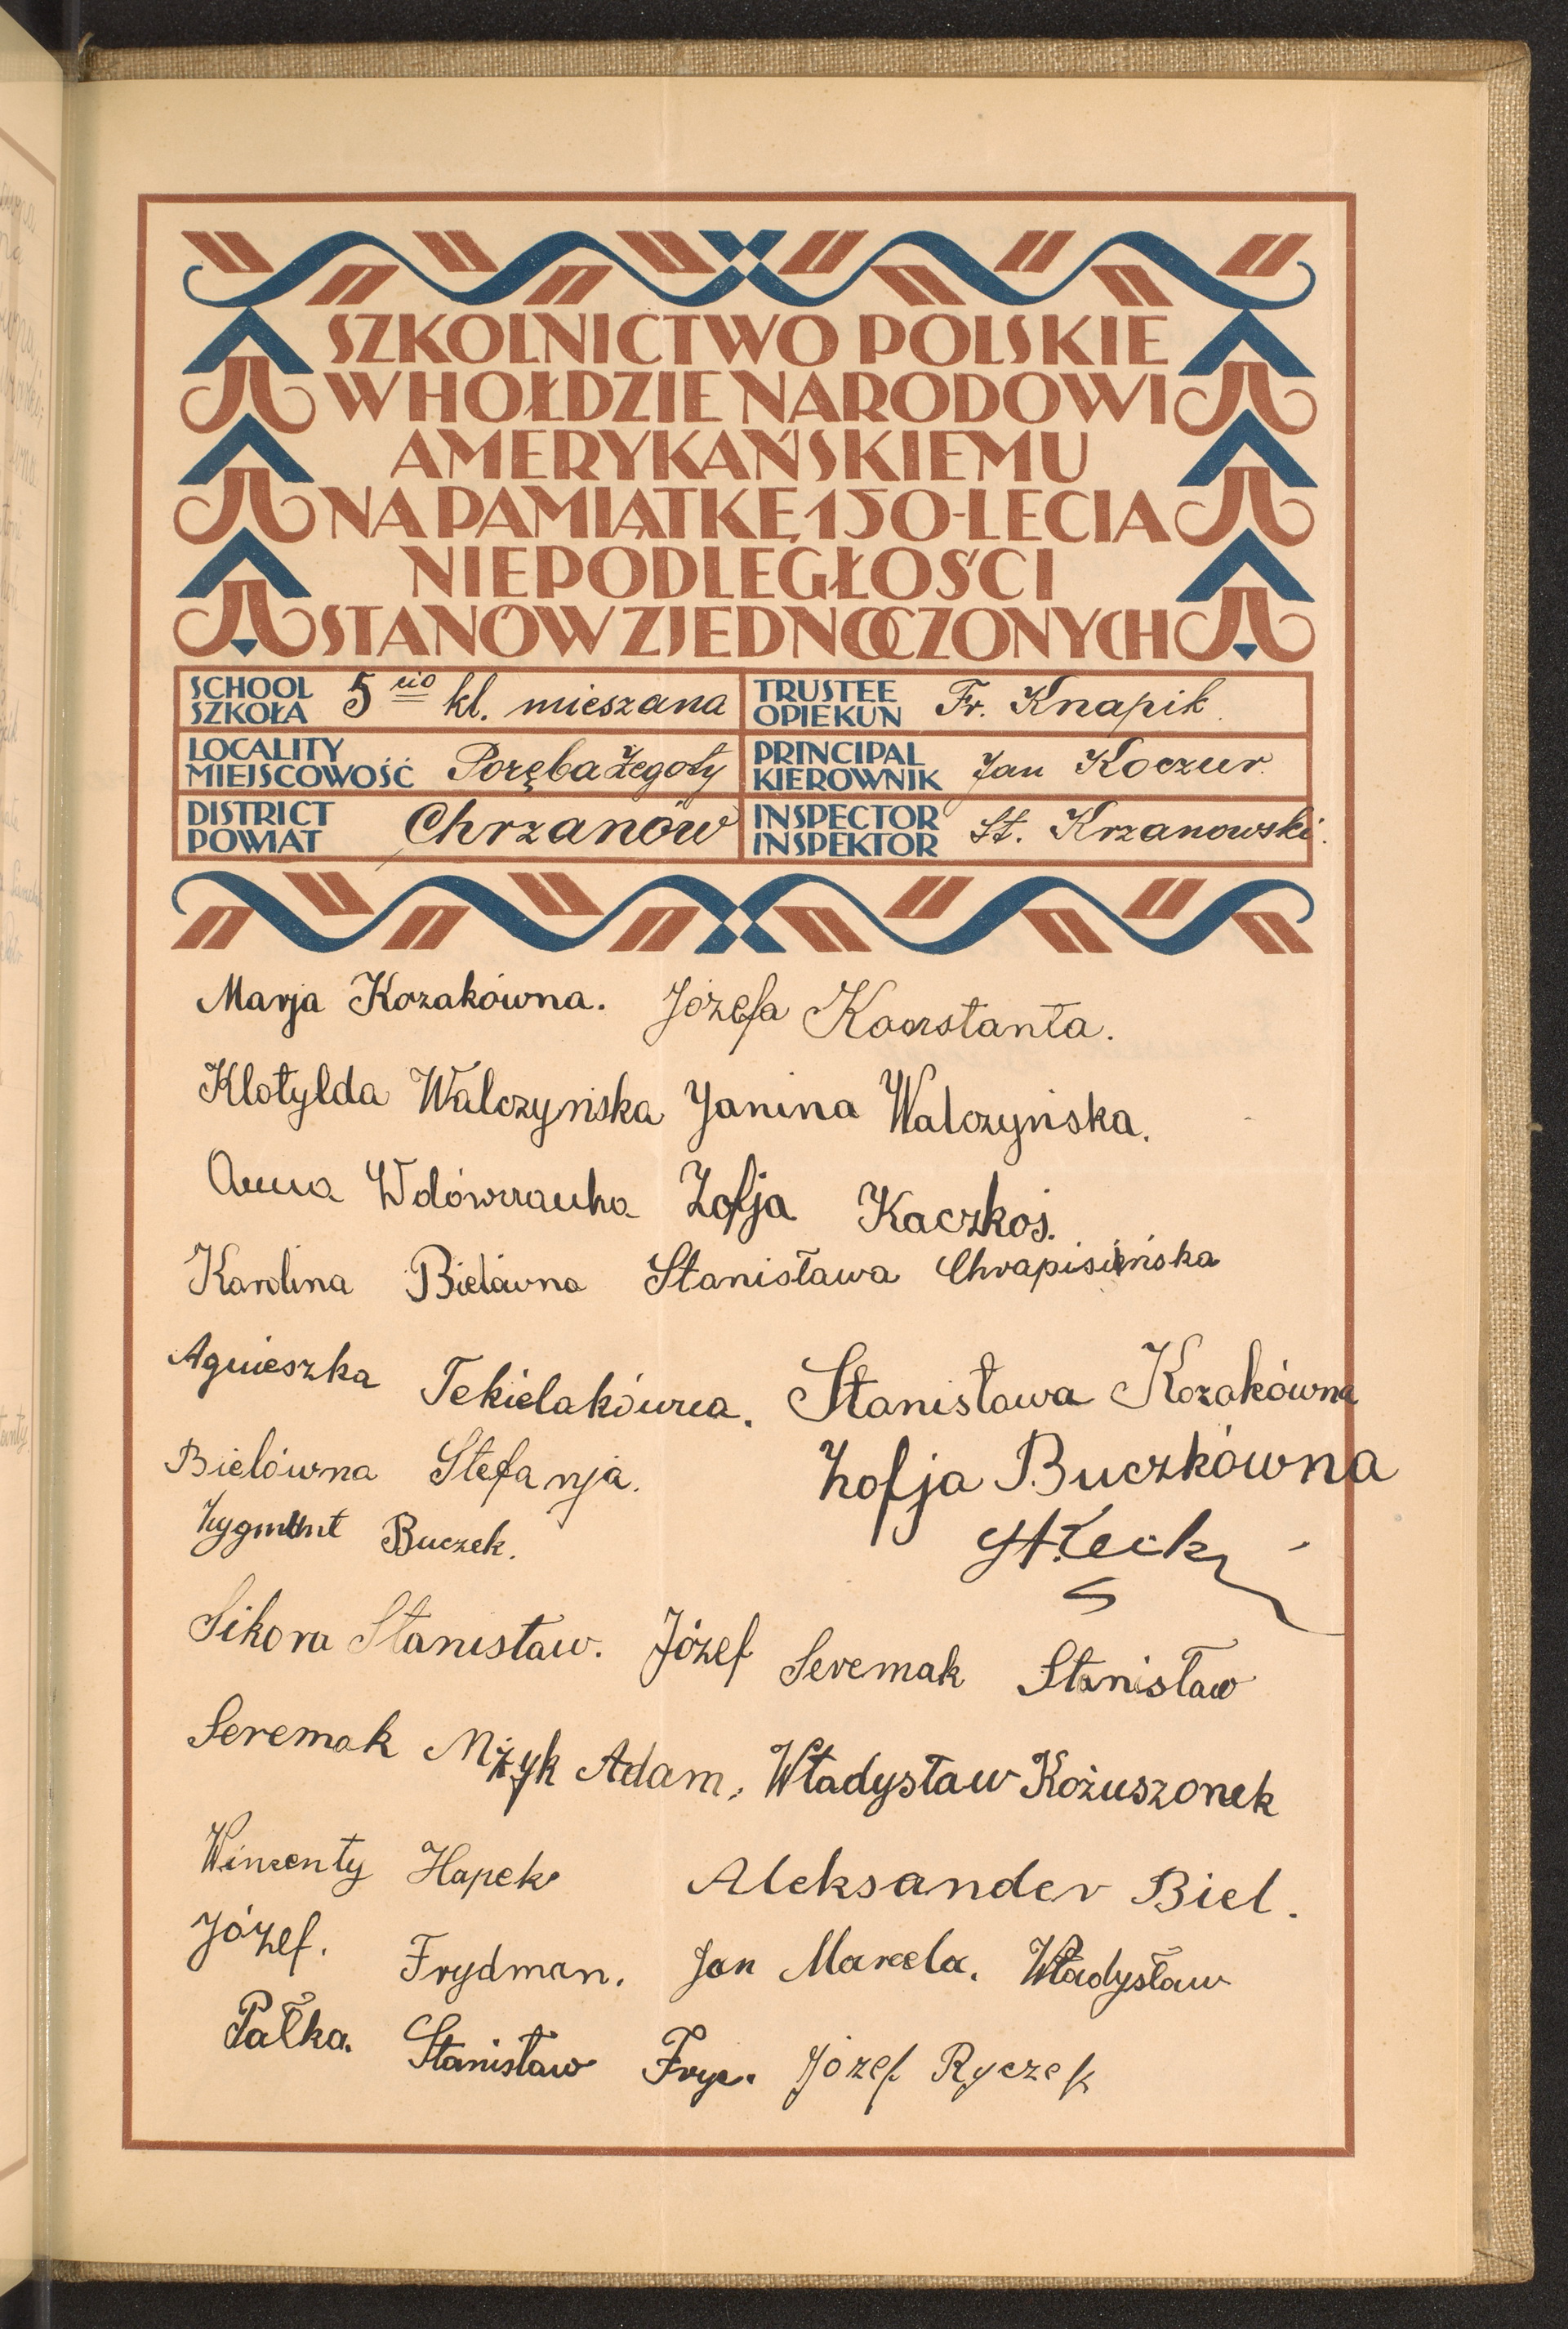 SZKOLNICTWO POLSKIE
W HOŁDZIE NARODOWI
AMERYKAŃSKIEMU
NA PAMIĄTKĘ 150-LECIA
NIEPODLEGŁOŚCI
STANÓW ZJEDNOCZONYCH
SCHOOL SZKOŁA 5 cio kl. mieszana TRUSTEE OPIEKUN Fr. Knapik
LOCALITY MIEJSCOWOŚĆ Poręba Żegoty PRINCIPAL KIEROWNIK Jan Koczur
DISTRICT POWIAT Chrzanów INSPECTOR INSPEKTOR St. Krzanowski.
Marja Kozakówna. Józefa Konstanta.
Klotylda Walczyńska Janina Walczyńska.
Anna Zofja Kaczkoś.
Karolina Bielówna Stanisława
Agnieszka Tekielakówna. Stanisława Kozakówna
Bielówna Stefanja. Zofja Buczkówna
Zygmunt Buczek.
Sikora Stanisław. Józef Seremak Stanisław
Seremak Mżyk Adam, Władysław Kożuszonek
Wincenty Hapek Aleksander Biel.
Józef. Frydman. Jan Marcela. Władysław
Pałka. Stanisław Fryc. Józef Ryczek